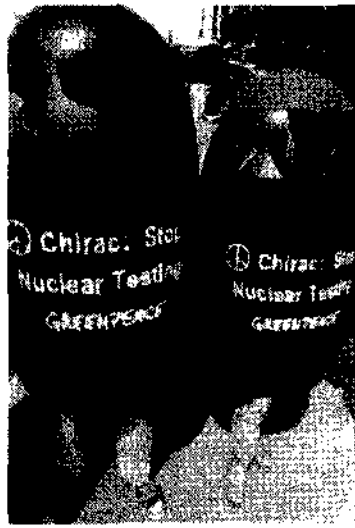 Chirac: Stop
Nuclear Testing
GREENPEACE
Chirac: Stop
Nuclear Testing
GREENPEACE